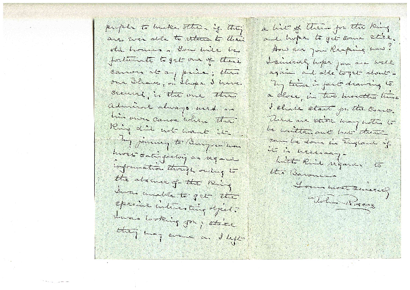 people to make others if they
are not able to return to their
old homes. You will be
fortunate to get one of these
canoes at any price; this
one I have, or shall have
secured, is the one the
Admiral always used as
his own canoe when the
King did not want it.
My journey to
was
most satisfactory as regards
information though owing to
the absence of the King
I was unable to get the
special interesting objects
I was looking for; still
they may come as I left
a list of them for the King
and hope to get some still.
How are you keeping now?
I sincerely hope you are well
again and able to get about.
My time is just drawing to
a close, in two months time
I shall start for the coast.
There are still many notes to
be written out but these
can be done in England if
it is necessary.
With kind regards to
the Baroness
Yours most sincerely
John Roscoe